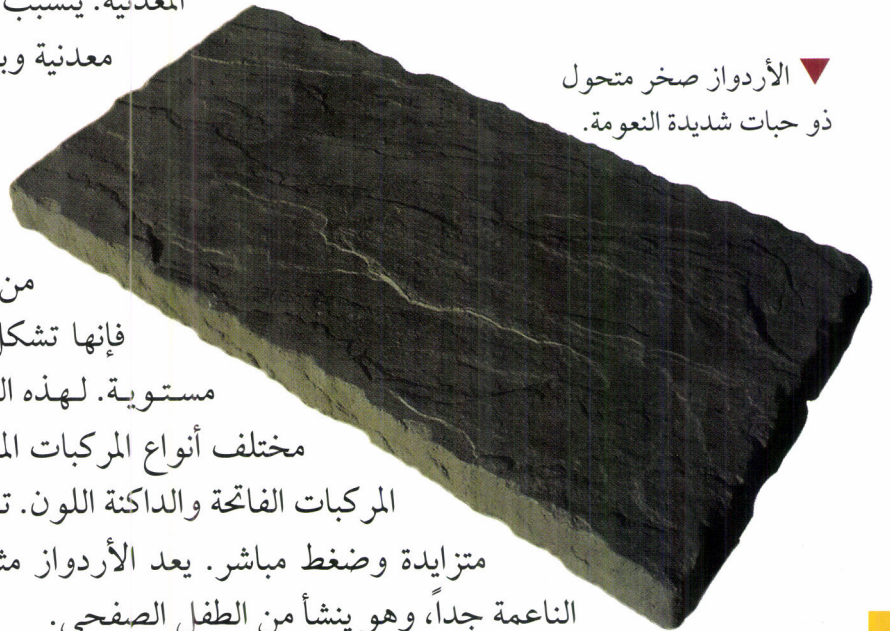 المعدنية. يتسبب
معدنية
▼ الأردواز صخر متحول
ذو حبات شديدة النعومة.
من
فإنها
مستوية. لهذه
مختلف أنواع المركبات
المركبات الفاتحة والداكنة اللون.
متزايدة وضغط مباشر. يعد الأردواز
الناعمة جداً، وهو ينشأ من الطفل الصفحي.